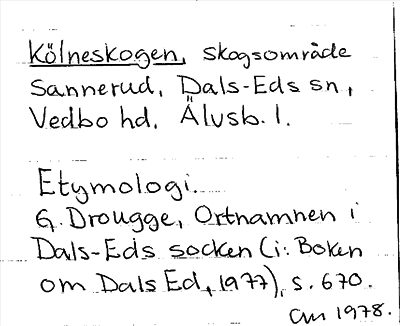 Kölneskogen, skogsområde
Sannerud, Dals-Eds sn,
Vedbo hd. Älvsb. l.
Etymologi.
G. Drougge, Ortnamnen i
Dals-Eds socken (i: Boken
om Dals Ed, 1977), s. 670.
1978.